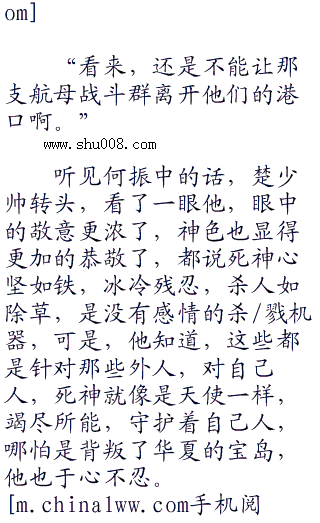 om]
“看来，还是不能让那
支航母战斗群离开他们的港
口啊。”
www.shu008.com
听见何振中的话，楚少
帅转头，看了一眼他，眼中
的敬意更浓了，神色也显得
更加的恭敬了，都说死神心
坚如铁，冰冷残忍，杀人如
除草，是没有感情的杀/戮机
器，可是，他知道，这些都
是针对那些外人，对自己
人，死神就像是天使一样，
竭尽所能，守护着自己人，
哪怕是背叛了华夏的宝岛，
他也于心不忍。
[m.china1ww.com手机阅